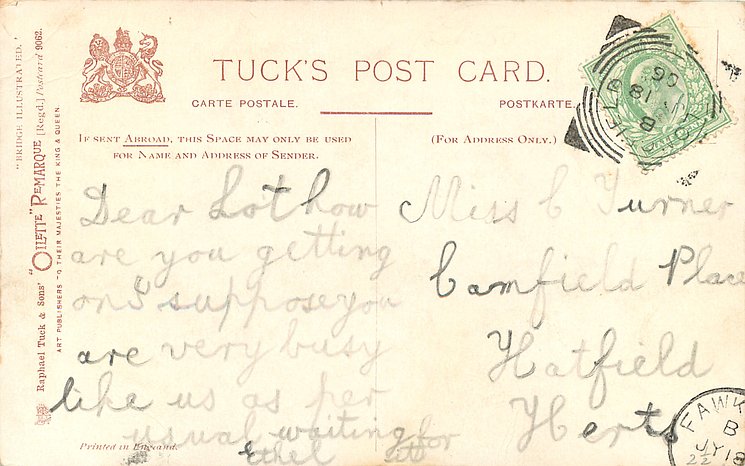 TUCK'S POST CARD.
CARTE POSTALE.
POSTKARTE.
IF SENT ABROAD, THIS SPACE MAY ONLY BE USED
FOR NAME AND ADDRESS OF SENDER.
(FOR ADDRESS ONLY.)
Dear Lot how
are you getting
on I suppose you
are very busy
like us as per
usual waiting for
Ethel
Miss C Turner
Camfield Place
Hatfield
Herts
Printed in England.
"BRIDGE ILLUSTRATED."
Raphael Tuck & Sons' "OILETTE" REMARQUE [Regd.] Postcard 9062.
ART PUBLISHERS TO THEIR MAJESTIES THE KING & QUEEN
FAWK
B
JY 18